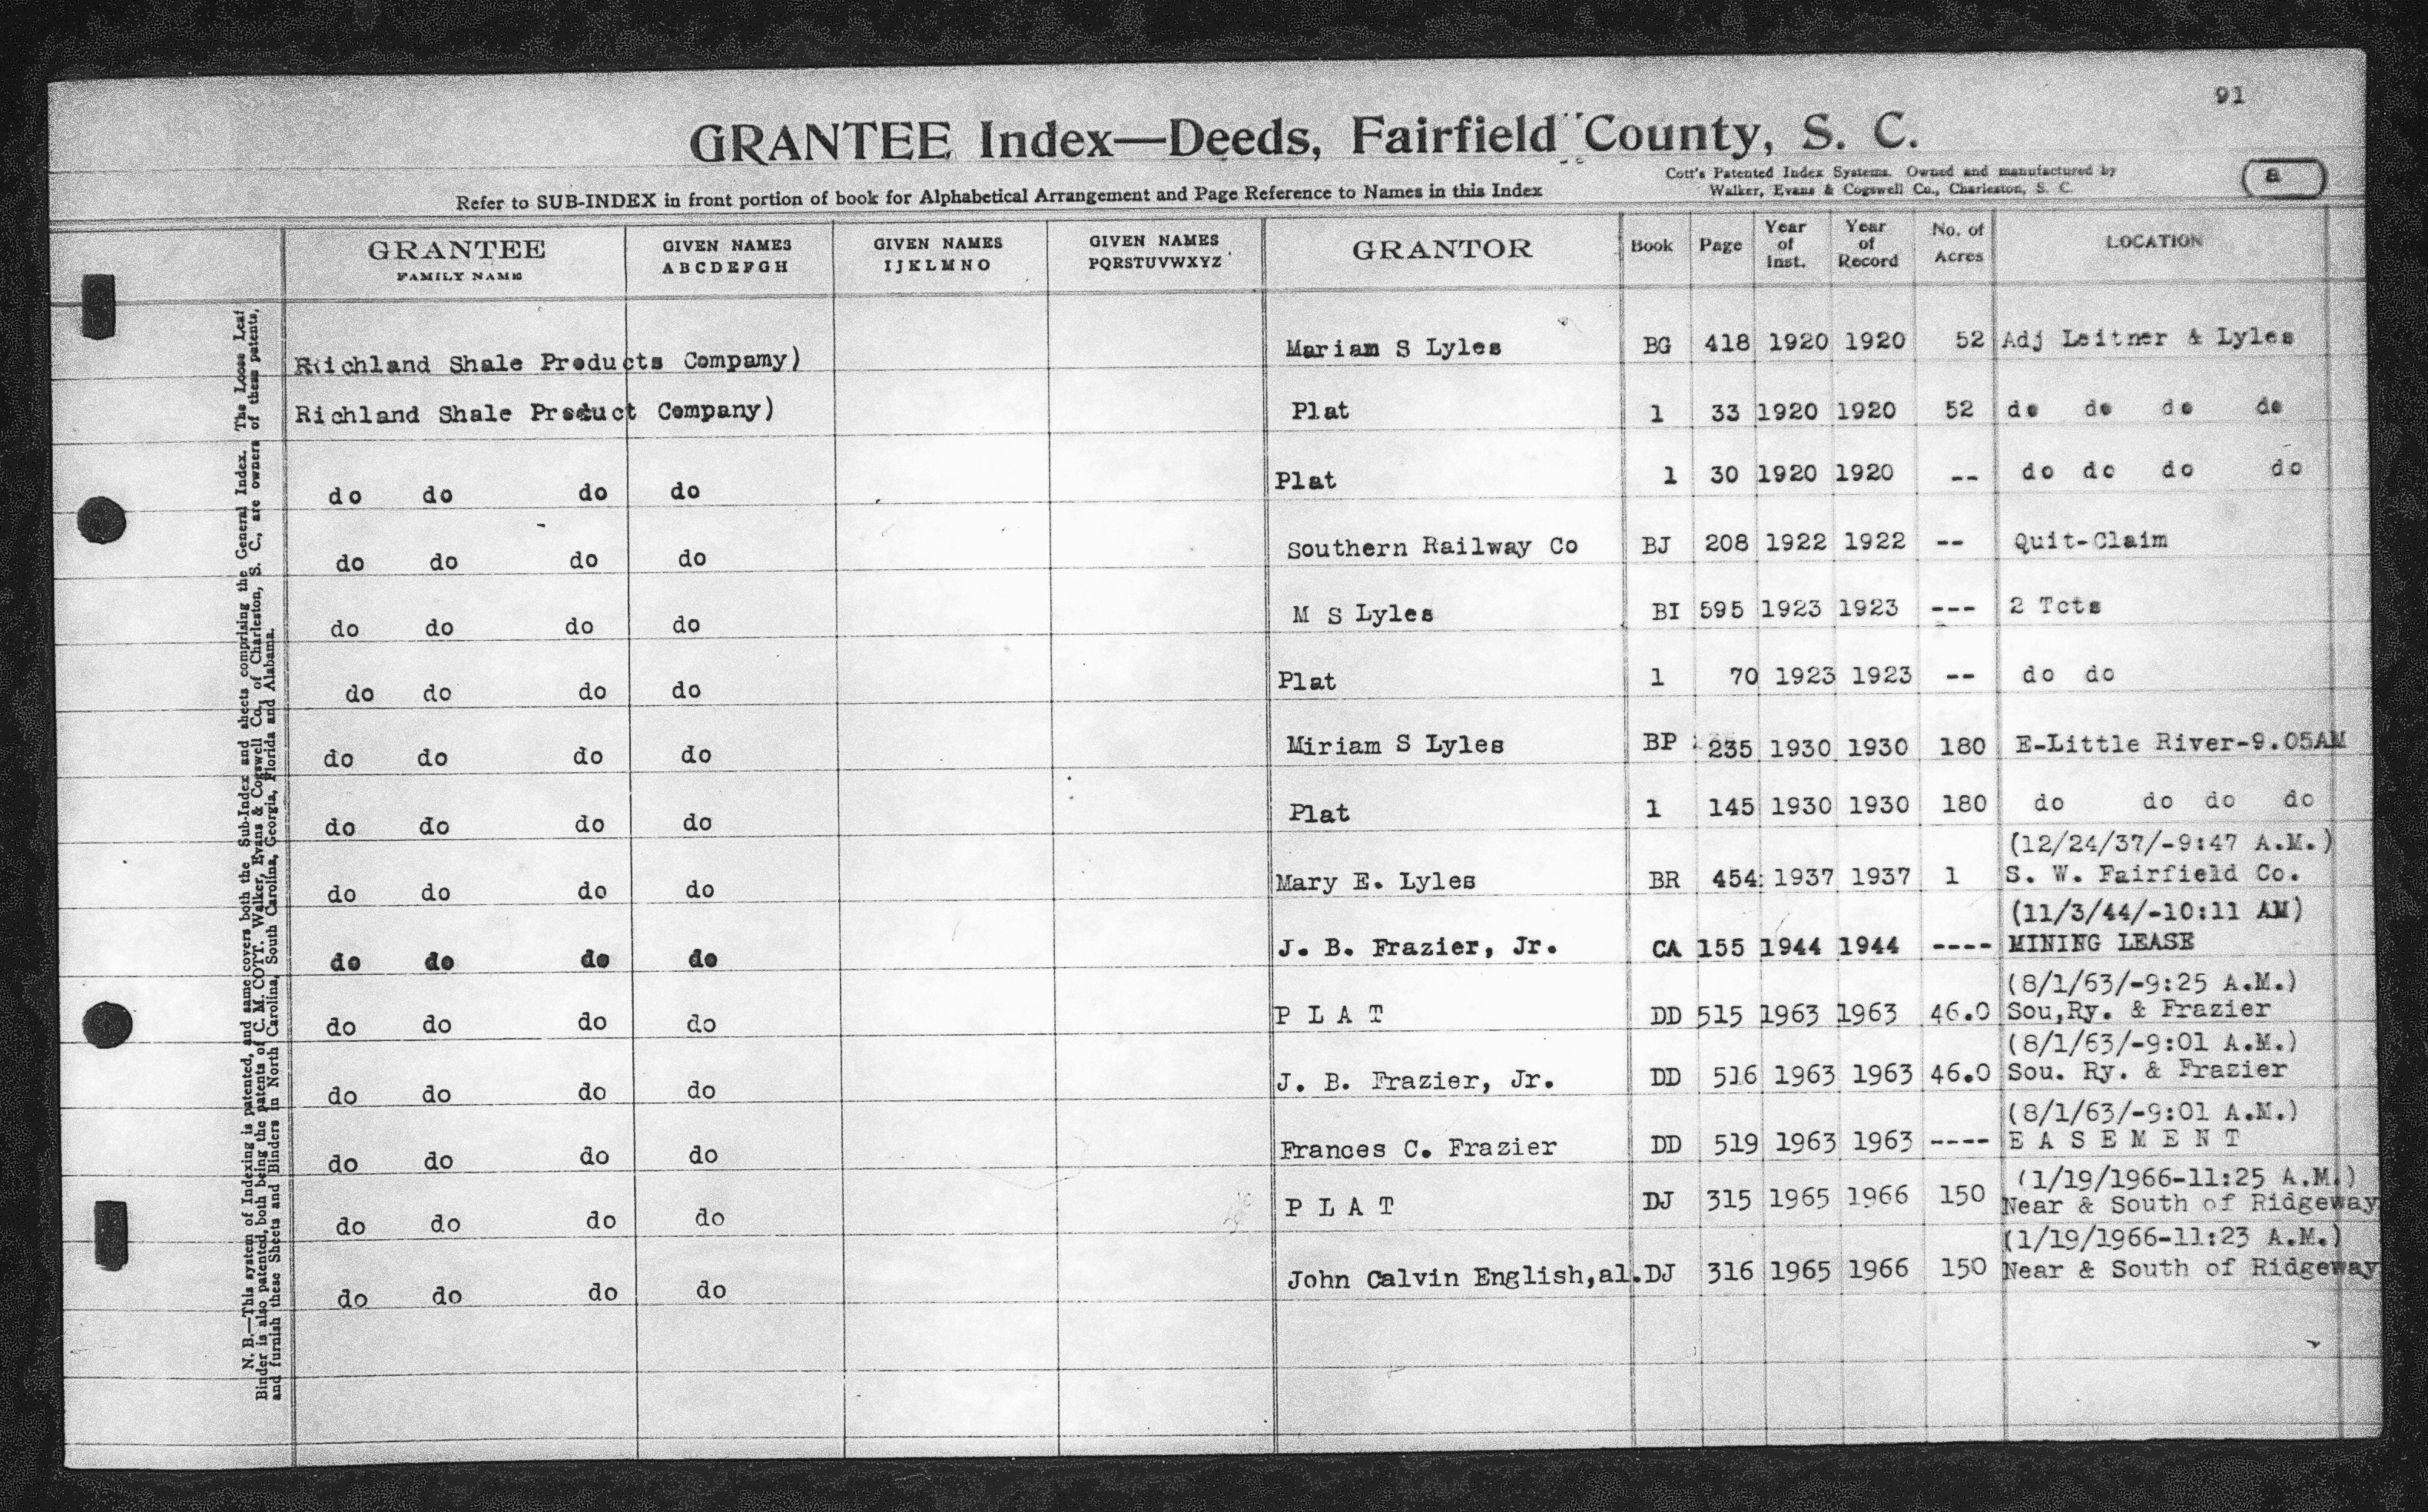 91
GRANTEE Index—Deeds, Fairfield County, S. C.
Cott's Patented Index Systems. Owned and manufactured by
Walker, Evans & Cogswell Co., Charleston, S. C.
a
Refer to SUB-INDEX in front portion of book for Alphabetical Arrangement and Page Reference to Names in this Index
GRANTEE FAMILY NAME GIVEN NAMES ABCDEFGH GIVEN NAMES IJKLMNO GIVEN NAMES PQRSTUVWXYZ GRANTOR Book Page Year of Inst. Year of Record No. of Acres LOCATION
Richland Shale Products Compamy) Mariam S Lyles BG 418 1920 1920 52 Adj Leitner & Lyles
Richland Shale Product Company) Plat 1 33 1920 1920 52 do do do do
do do do do Plat 1 30 1920 1920 -- do do do do
do do do do Southern Railway Co BJ 208 1922 1922 -- Quit-Claim
do do do do M S Lyles BI 595 1923 1923 --- 2 Tcts
do do do do Plat 1 70 1923 1923 -- do do
do do do do Miriam S Lyles BP 235 1930 1930 180 E-Little River-9.05AM
do do do do Plat 1 145 1930 1930 180 do do do do
(12/24/37/-9:47 A.M.)
do do do do Mary E. Lyles BR 454 1937 1937 1 S. W. Fairfield Co.
(11/3/44/-10:11 AM)
do do do do J. B. Frazier, Jr. CA 155 1944 1944 ---- MINING LEASE
(8/1/63/-9:25 A.M.)
do do do do P L A T DD 515 1963 1963 46.0 Sou,Ry. & Frazier
(8/1/63/-9:01 A.M.)
do do do do J. B. Frazier, Jr. DD 516 1963 1963 46.0 Sou. Ry. & Frazier
(8/1/63/-9:01 A.M.)
do do do do Frances C. Frazier DD 519 1963 1963 ---- E A S E M E N T
(1/19/1966-11:25 A.M.)
do do do do P L A T DJ 315 1965 1966 150 Near & South of Ridgeway
(1/19/1966-11:23 A.M.)
do do do do John Calvin English,al. DJ 316 1965 1966 150 Near & South of Ridgeway
N. B.—This system of Indexing is patented, and same covers both the Sub-Index and sheets comprising the General Index. The Loose Leaf
Binder is also patented, both being the patents of C. M. COTT. Walker, Evans & Cogswell Co., of Charleston, S. C., are owners of these patents,
and furnish these Sheets and Binders in North Carolina, South Carolina, Georgia, Florida and Alabama.